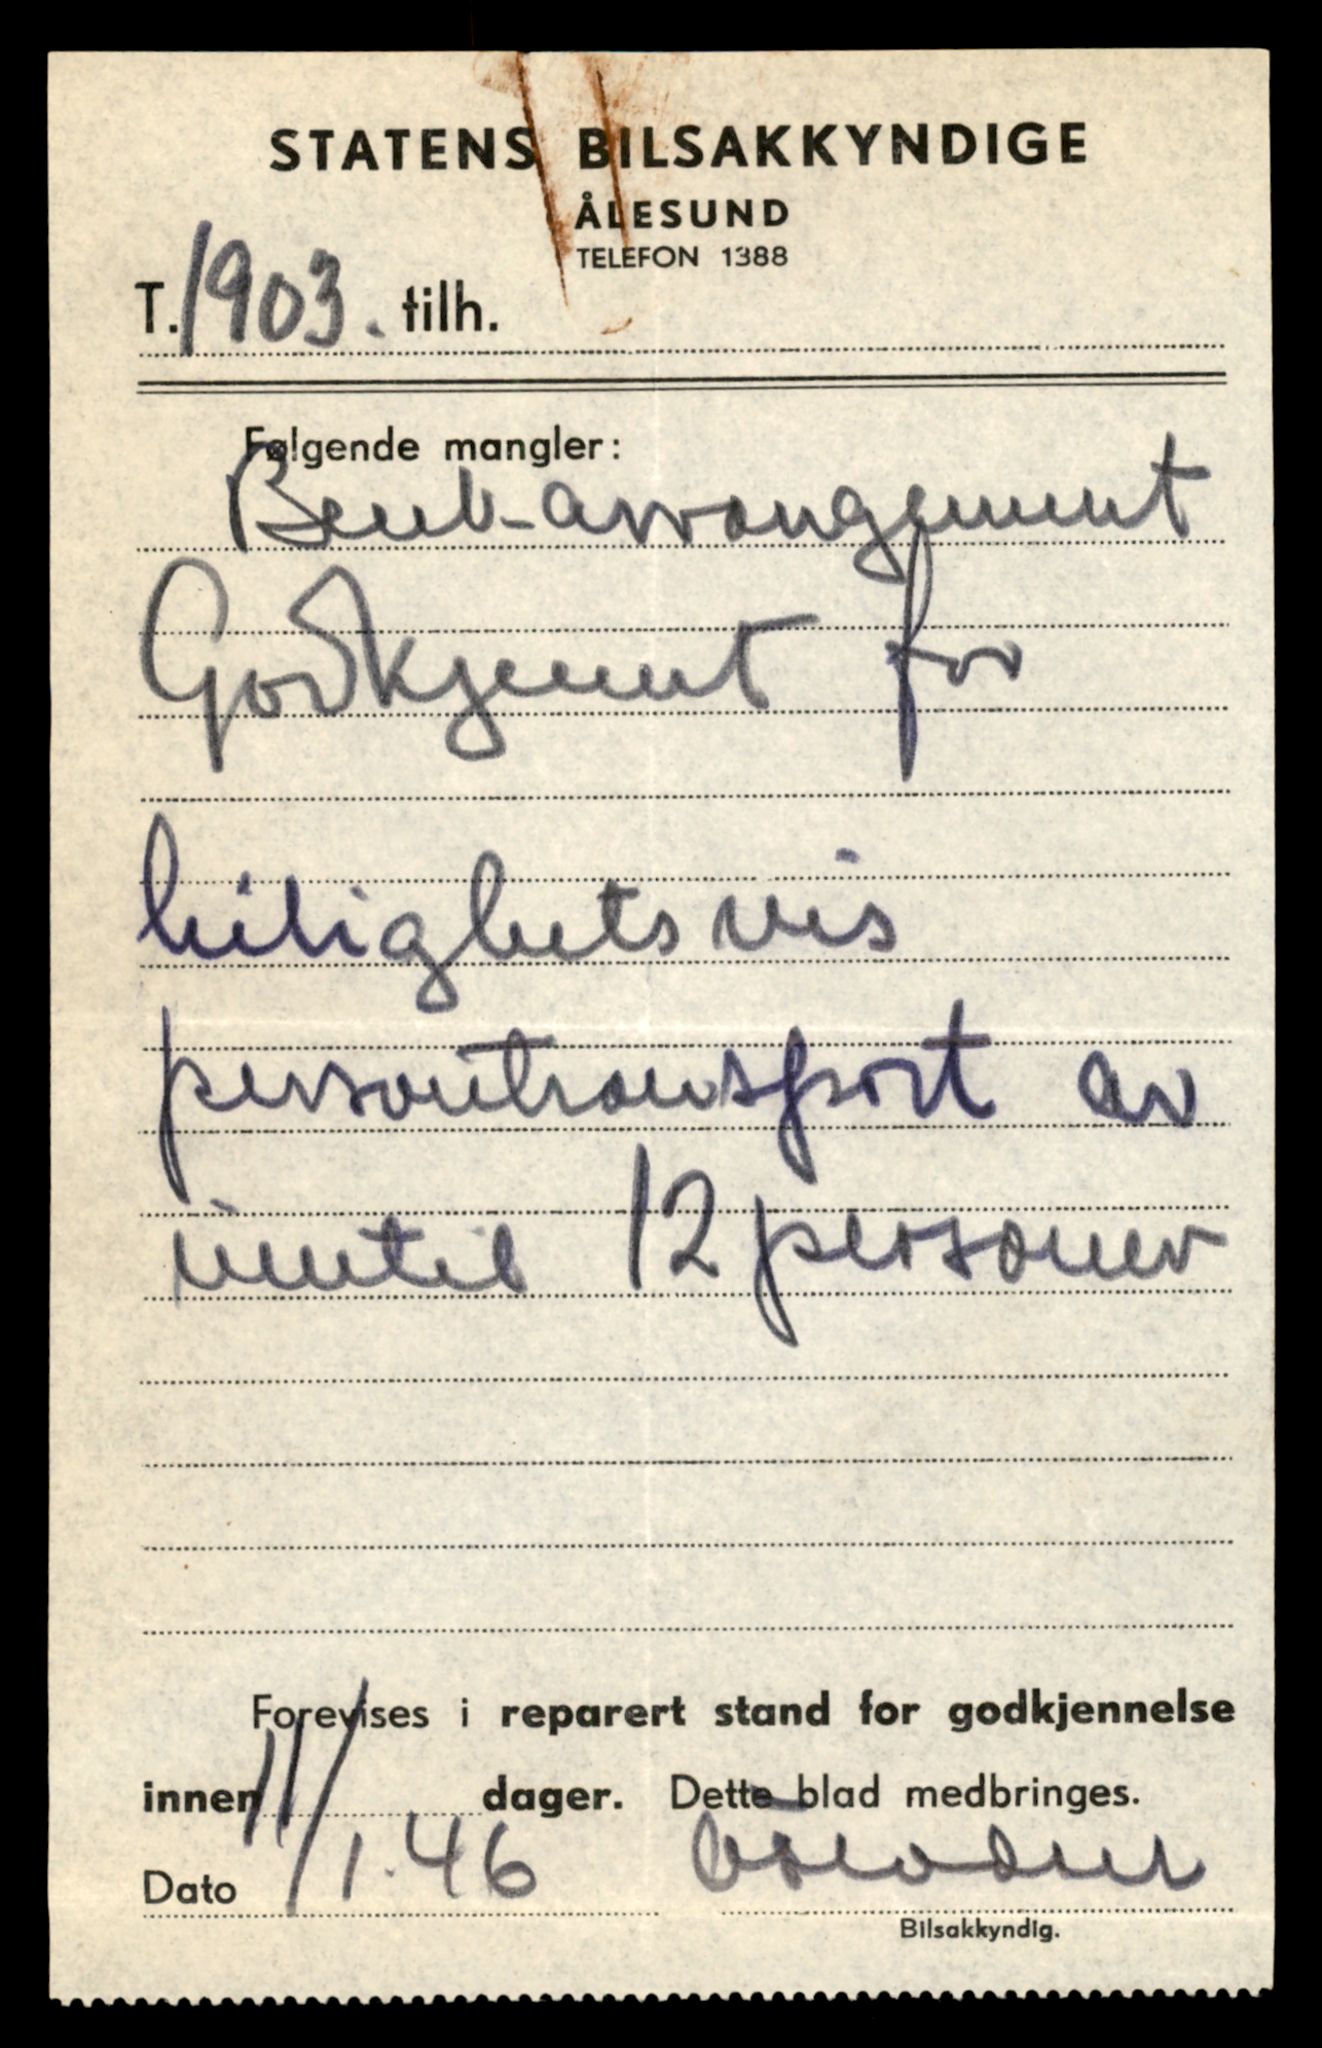 STATENS BILSAKKYNDIGE
ÅLESUND
TELEFON 1388
T. 1903. tilh.
Følgende mangler:
Benk-arrangement
Godkjennt for
leilighetsvis
persontransport av
inntil 12 personer
Forevises i reparert stand for godkjennelse
innen dager. Dette blad medbringes.
Dato 11/1.46
Bilsakkyndig.